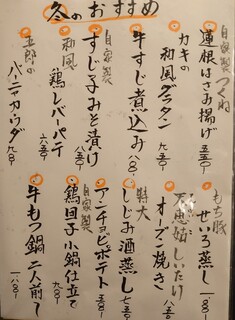 冬のおすすめ
自家製つくね
蓮根はさみ揚げ 五五〇-
カキの
和風グラタン 九八〇-
牛すじ煮込み 八〇〇-
自家製
すじ子みそ漬け 八五〇-
和風
鶏レバーパテ 六五〇-
五郎の
バーニャカウダ 九八〇-
もち豚
せいろ蒸し 一一八〇-
しいたけ
オーブン焼き 八五〇-
特大
しじみ酒蒸し 七五〇-
アンチョビポテト 五八〇-
自家製
鶏団子小鍋仕立て 九八〇-
牛もつ鍋 二人前〜 一八八〇-